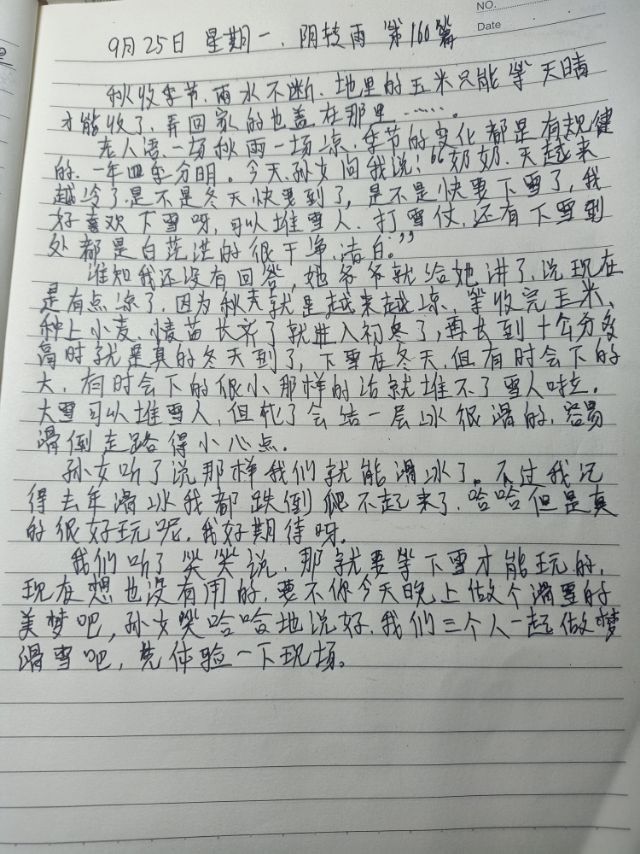 NO.
Date
9月25日 星期一、阴转雨 第160篇
秋收季节,雨水不断、地里的玉米只能等天晴
才能收了、弄回家的也盖在那里……。
老人语、一场秋雨一场凉、季节的变化都是有规健
的、一年四季分明。今天、孙女问我说:“奶奶、天越来
越冷了、是不是冬天快要到了,是不是快要下雪了,我
好喜欢下雪呀,可以堆雪人、打雪仗、还有下雪到
处都是白茫茫的很干净、洁白。”
谁知我还没有回答,她爷爷就给她讲了、说现在
是有点凉了、因为秋天就是越来越凉、等收完玉米、
种上小麦、小麦苗长齐了就进入初冬了,再长到十公分多
高时就是真的冬天到了,下雪在冬天、但有时会下的
大、有时会下的很小那样的话就堆不了雪人啦、
大雪可以堆雪人,但化了会结一层冰很滑的,容易
滑倒走路得小心点.
孙女听了说那样我们就能滑冰了。不过我记
得去年滑冰我都跌倒爬不起来了、哈哈但是真
的很好玩呢,我好期待呀。
我们听了笑笑说,那就要等下雪才能玩的、
现在想也没有用的、要不你今天晚上做个滑雪的
美梦吧,孙女笑哈哈地说好、我们三个人一起做梦
滑雪吧,先体验一下现场。